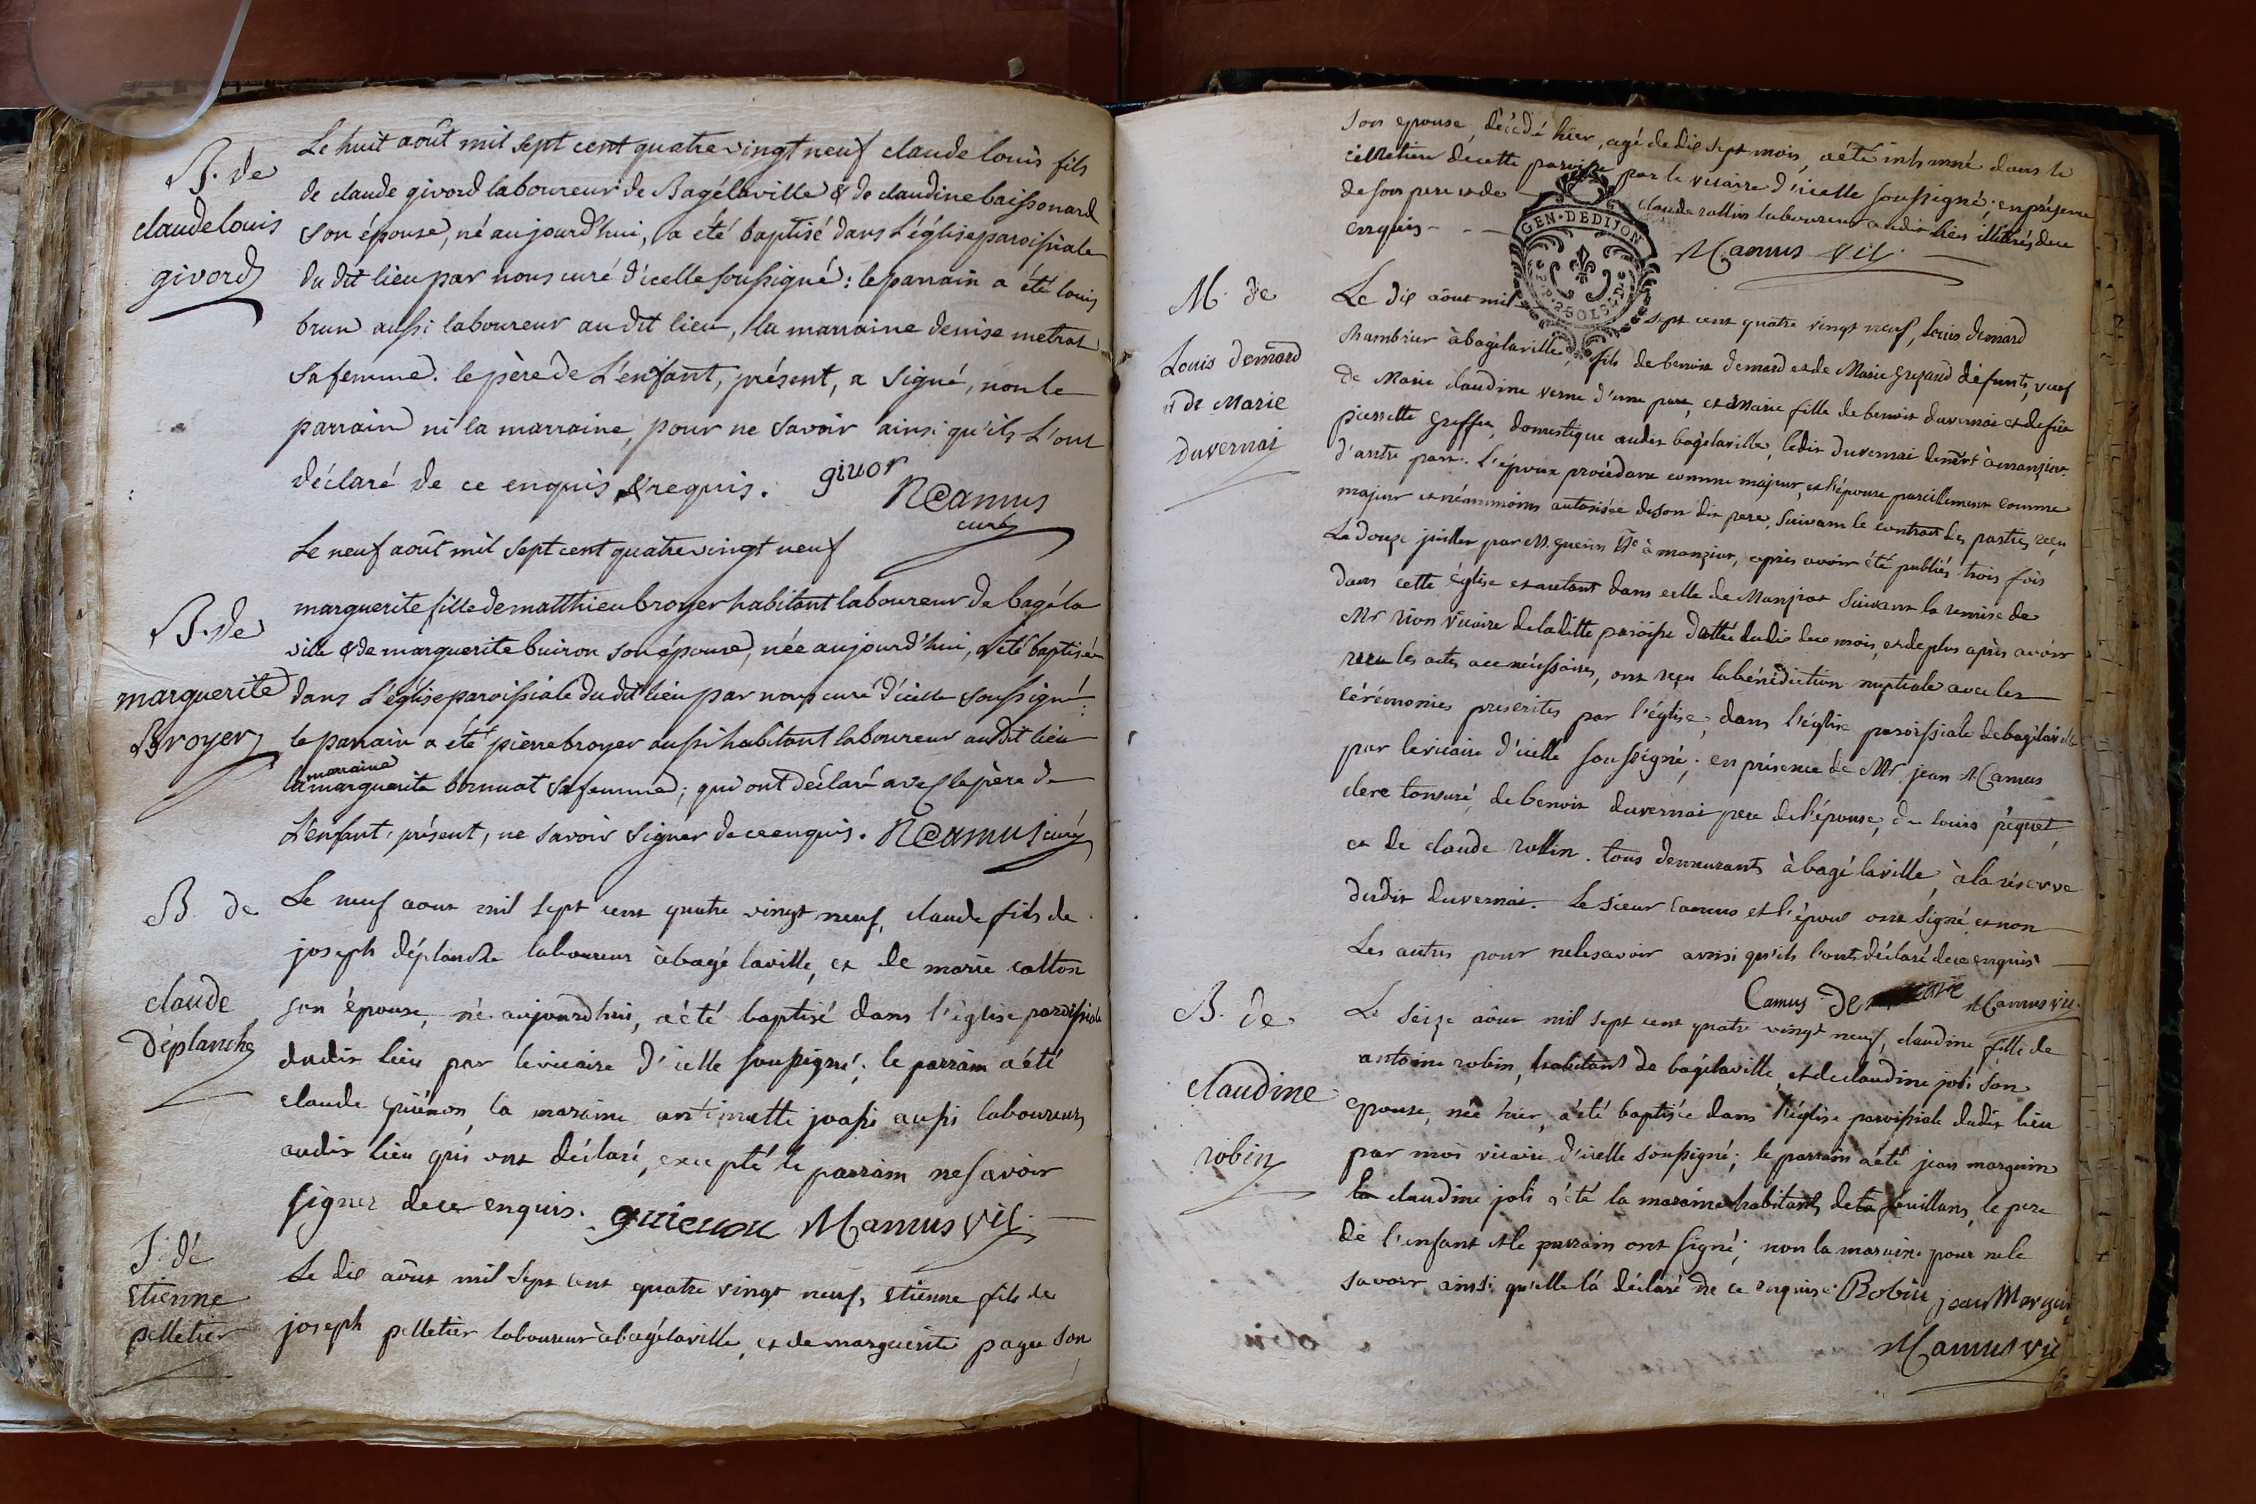 B. de
claude louis
givord
Le huit août mil sept cent quatre vingt neuf claude louis fils
de claude givord laboureur de Bagélaville & de claudine baissonard
son épouse, né aujourd'hui, a été baptisé dans L'église paroissiale
du dit lieu par nous curé d'icelle soussigné : le parrain a été louis
brun aussi laboureur au dit lieu, la marraine denise metrat
sa femme. le père de L'enfant, présent, a signé, non le
parrain ni la marraine, pour ne savoir ainsi qu'ils L'ont
déclaré de ce enquis & requis. givor
NCamus
curé
B. de
marguerite
Broyer
Le neuf août mil sept cent quatre vingt neuf
marguerite fille de matthieu broyer habitant laboureur de bagé la
ville & de marguerite buiron son épouse, née aujourd'hui, a été baptisée
dans L'église paroissiale du dit lieu par nous curé d'icelle soussigné :
le parrain a été pierre broyer aussi habitant laboureur au dit lieu
la marraine marguerite bornuat sa femme ; qui ont déclaré avec le père de
L'enfant, présent, ne savoir signer de ce enquis. NCamus curé
B. de
claude
déplanche
Le neuf aout mil sept cent quatre vingt neuf, claude fils de
joseph déplanche laboureur à bagé laville, et de marie catton
son épouse, né aujourd'hui, a été baptisé dans l'église paroissiale
dudit lieu par le vicaire d'icelle soussigné ; le parrain a été
claude guienon la maraine antimette joassi aussi laboureurs
audit lieu qui ont déclaré, excepté le parrain ne savoir
signer de ce enquis. guienon MCamus vic.
S. de
Etienne
pelletier
Le dix aôut mil sept cent quatre vingt neuf, Etienne fils de
joseph pelletier laboureur à bagélaville, et de marguerite pagu son
son epouse, décédé hier, agé de dix sept mois, a été inhumé dans le
cimetiere de cette paroisse par le vicaire d'icelle soussigné : en présence
de son pere et de claude rollin laboureur audit lieu illitérés de ce
enquis - - -
MCamus vic.
GEN. DE DIJON
M. de
Louis demard
et de Marie
duvernai
Le dix aôut mil sept cent quatre vingt neuf, Louis demard
chambrier à bagélaville, fils de benoit demard et de Marie greffaud défunts, veuf
de Marie claudine verne d'une part, et Marie fille de benoit duvernai et de füe
pierrette greffet, domestique audit bagélaville, ledit duvernai demt à manziat
d'autre part : l'époux procédant comme majeur, et l'épouse pareillement comme
majeur et néanmoins autorisée de son dit pere, suivant le contrat des parties reçu
Le douze juillet par M. guerin Nre à manziat, après avoir été publiés trois fois
dans cette église et autant dans celle de Manziat suivant la remise de
Mr vion vicaire de laditte paroisse dattée du dix de ce mois, et de plus après avoir
reçu les actes a ce nécessaires, ont reçu la bénédiction nuptiale avec les
cérémonies prescrites par l'église, dans l'église paroissiale de bagélaville
par le vicaire d'icelle soussigné ; en présence de Mr jean MCamus
clerc tonsuré, de benoit duvernai pere de l'épouse, de louis péquet,
et de claude rollin. tous demeurants à bagé laville, à la réserve
dudit duvernai. Le sieur Camus et l'époux ont signé, et non
Les autres pour ne le savoir ainsi qu'ils l'ont déclaré de ce enquis
Camus MCamus vic.
B. de
claudine
robin
Le seize aôut mil sept cent quatre vingt neuf, claudine fille de
antoine robin, habitant de bagélaville, et de claudine joli son
epouse, née hier, a été baptisée dans l'église paroissiale dudit lieu
par moi vicaire d'icelle soussigné ; le parrain a été jean marguin
claudine joli a été la maraine habitants de feuillans, le pere
de l'enfant et le parrain ont signé ; non la maraine pour ne le
savoir ainsi qu'elle l'a déclaré de ce enquise. Robin jean Marguin
MCamus vic